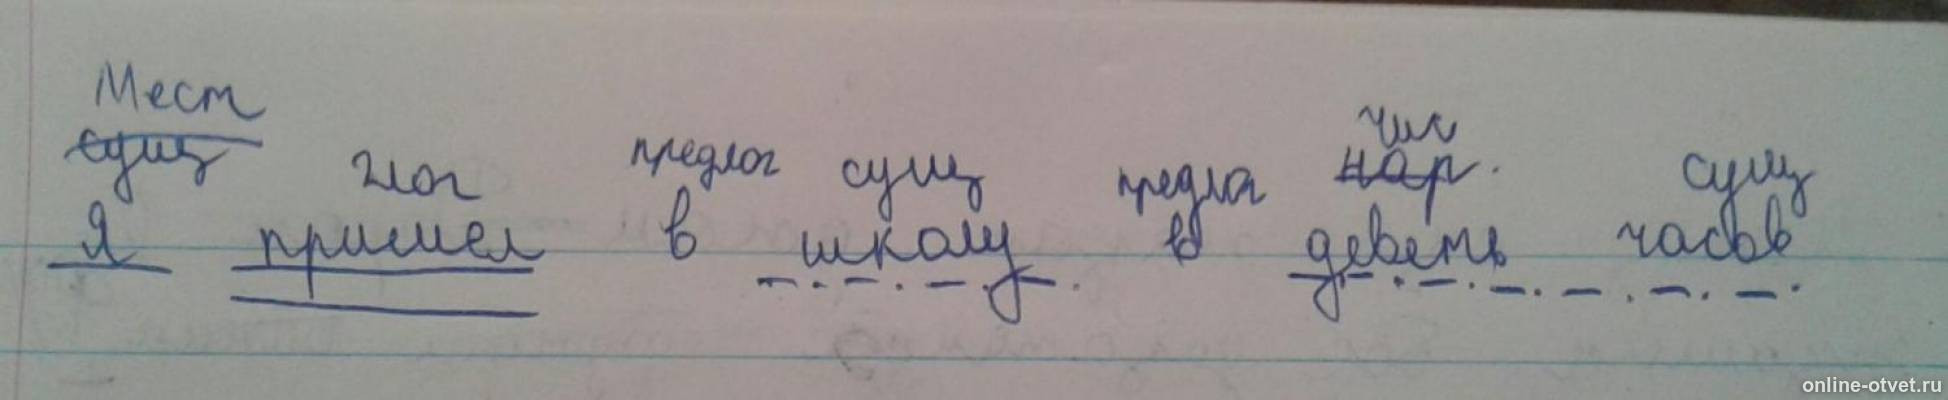 Мест
сущ глаг предлог сущ предлог чис нар. сущ
Я пришел в школу в деветь часов
online-otvet.ru